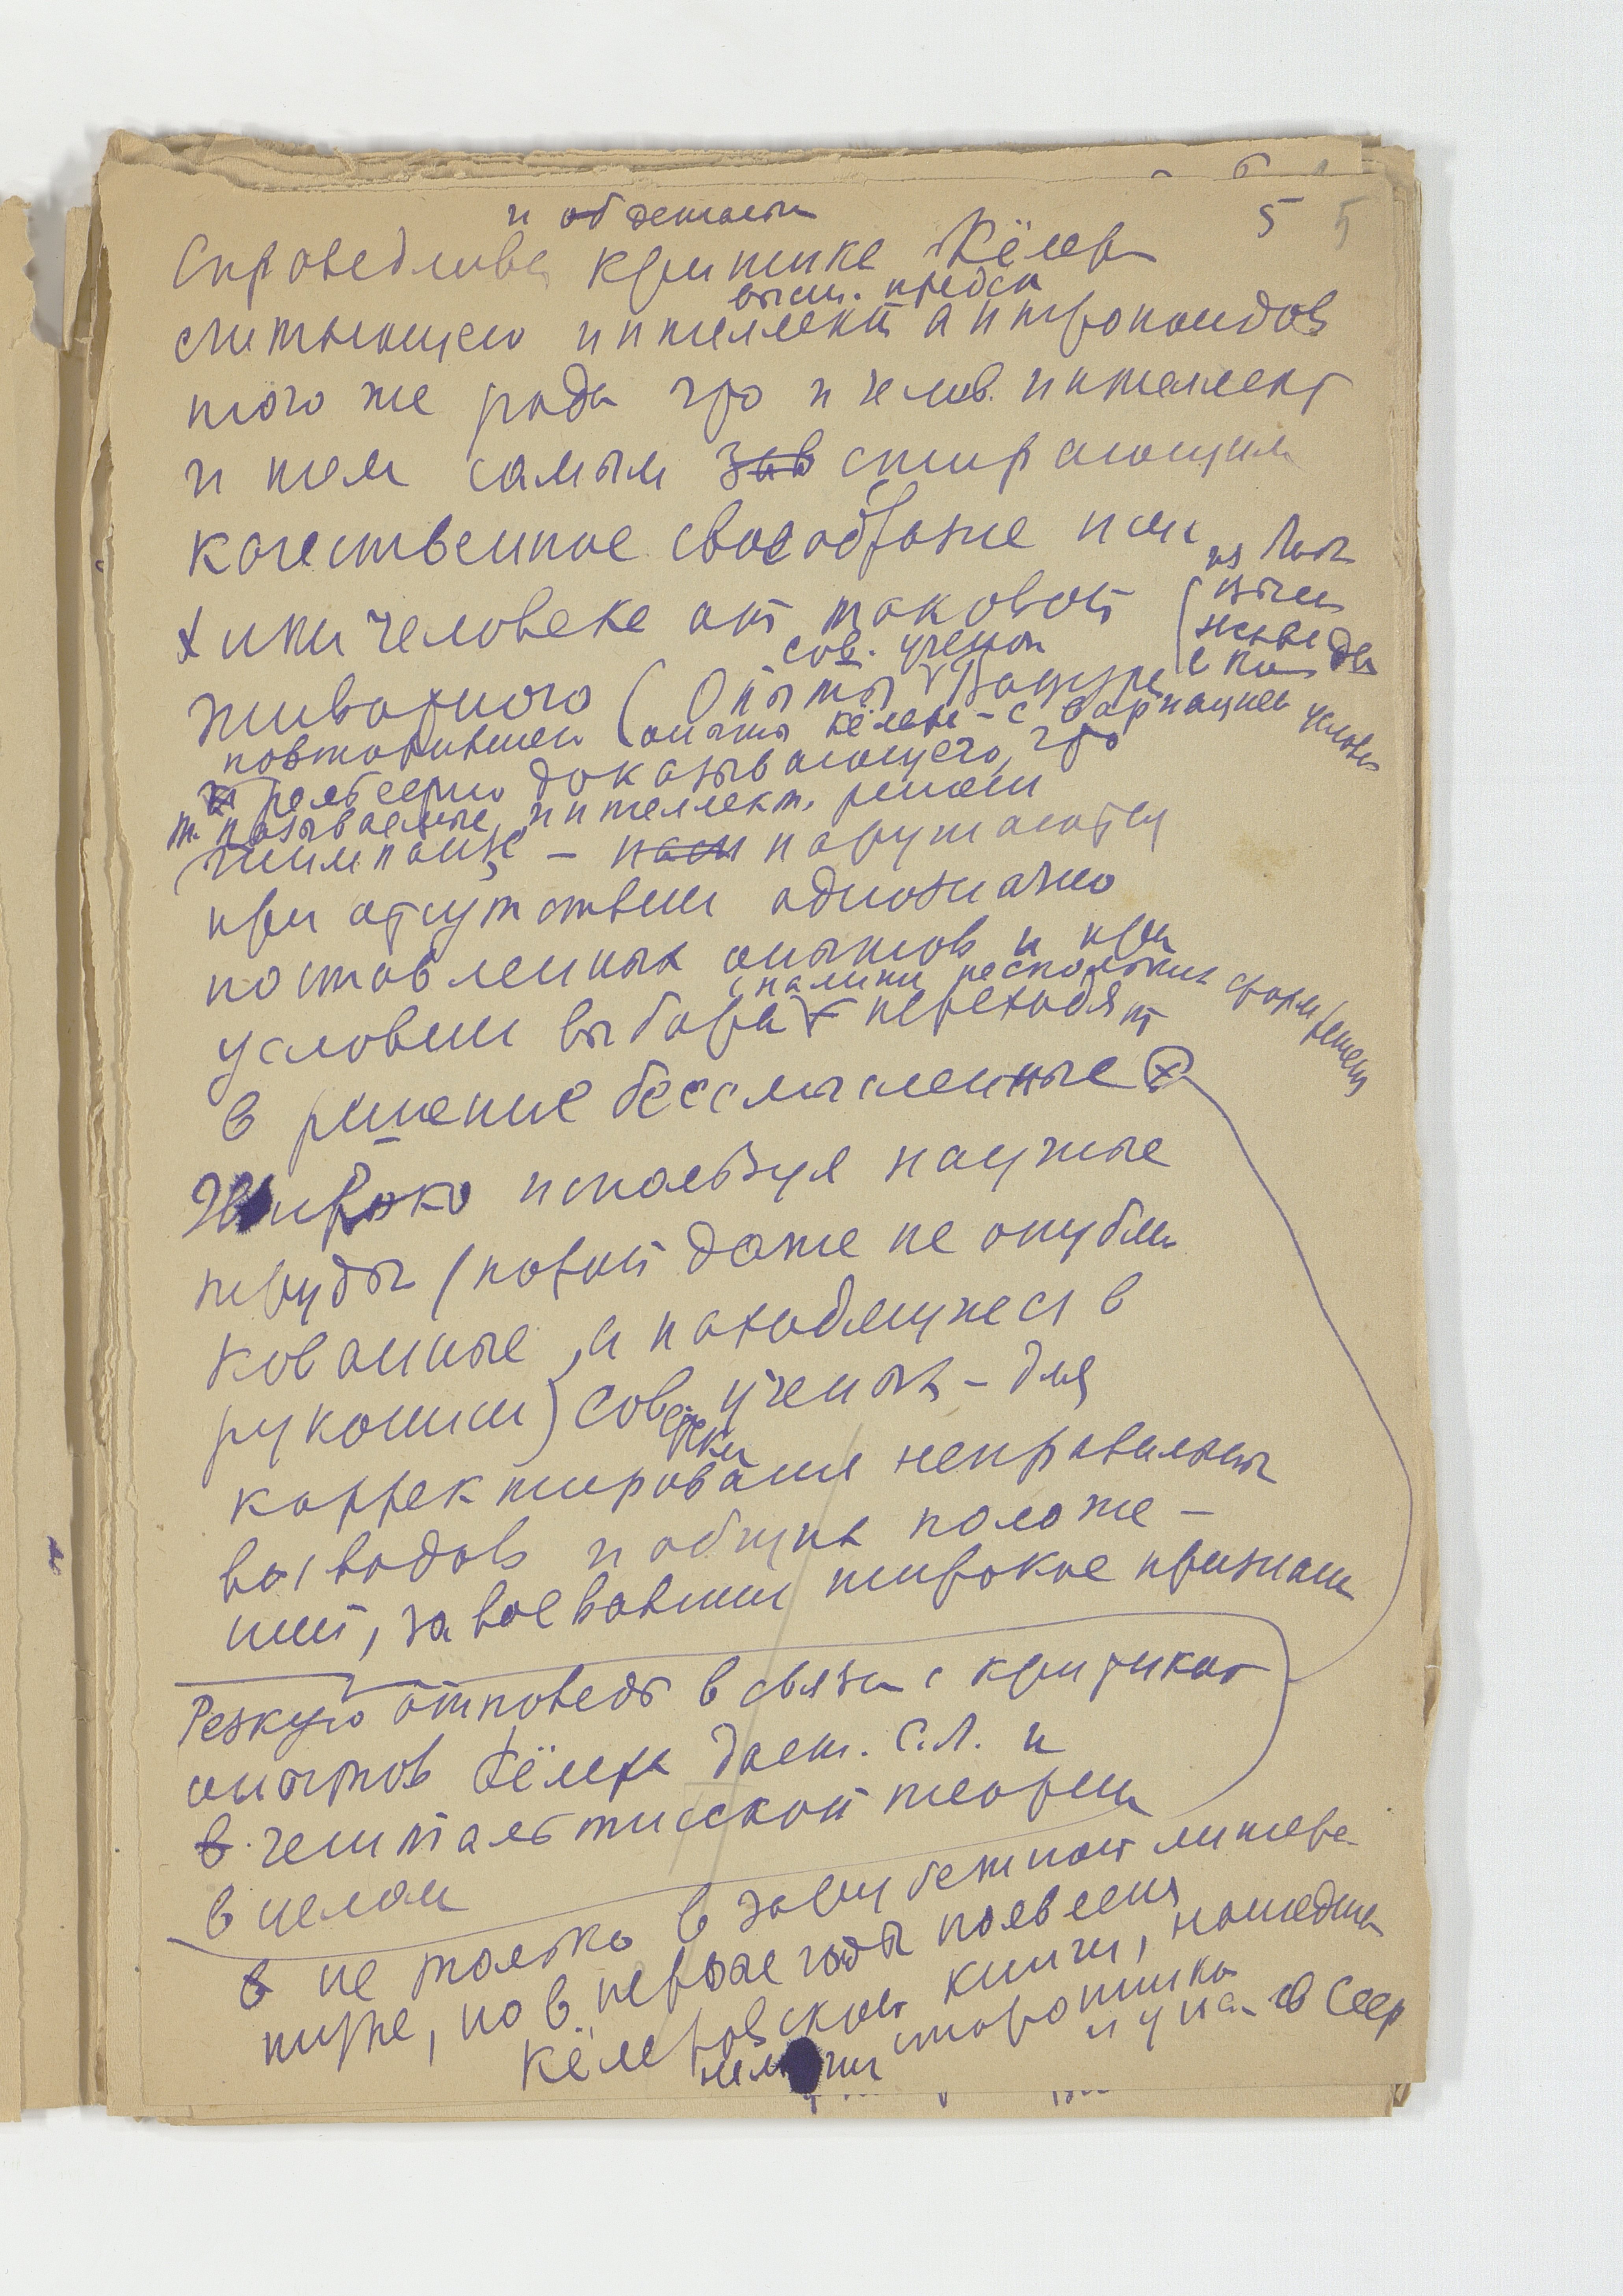 5 5
и объективн
Справедлива критике Кёлера
высш. предст
считающего интеллект антропоидов
того же рода что и челов. интеллект
и тем самым стирающим
качественное своеобразие псих
хики человека от таковой
сов. ученой
животного (Опыты
повторившей опыты Кёлера - с вариацией условий
рельефно доказывающего, что
т. называемые интеллект. решен
шимпанзе - нарушаются
при отсутствии однозначно
поставленных опытов и при
наличии нескольких форм решен
условии выбора переходят
в решение бессмысленные
Широко используя научные
труды (порой даже не опубли
кованные, а находящиеся в
рукописи) советских ученых - для
корректирования неправильных
выводов и общих положе-
ний, завоевавших широкое признан
Резкую отповедь в связи с критикой
опытов Кёлера дает. С.Л. и
в гештальтистской теории
в целом
в не только в зарубежной литера-
туре, но в первые годы появления
Кёлеровской книги, нашедшей
сторонника
и у нас в СССР